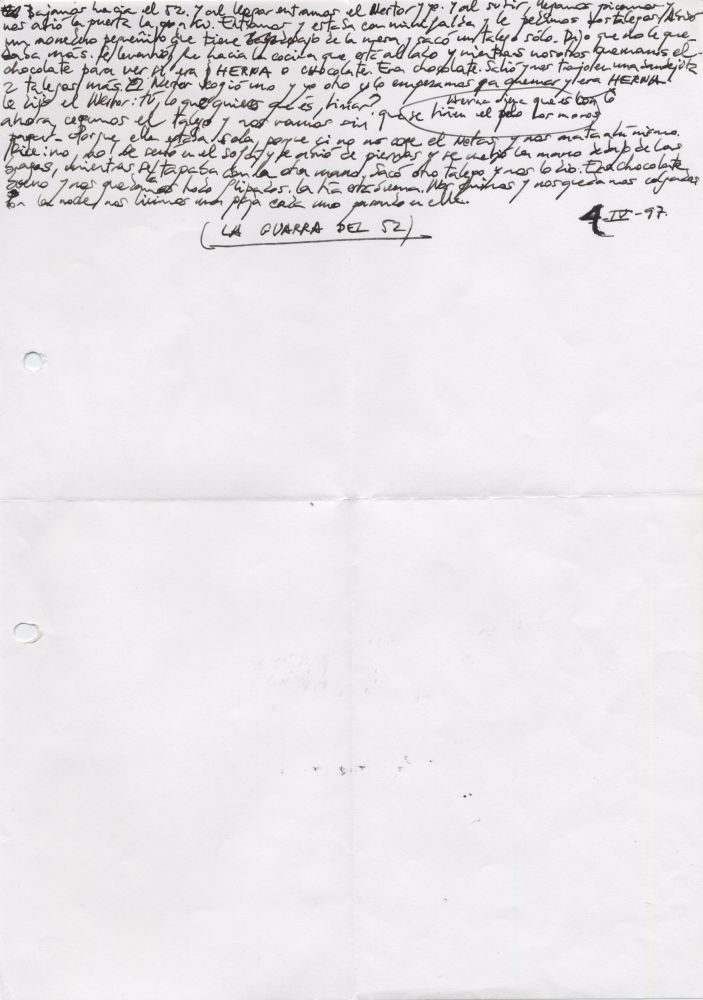 Bajamos hacia el 52. Y al llegar entramos el Nertor y yo. Y al subir, llegamos picamos y
nos abrió la puerta la Entramos y estaba con minifalda y le pedimos dos talegos. Abrió
un monedero pequeñito que tiene debajo de la mesa y sacó un talego sólo. Dijo que no le que-
daba más. Se levantó, fue hacia la cocina que está al lado y mientras nosotros quemamos el
chocolate para ver si era HERNA o chocolate. Era chocolate. Salió y nos trajo en una bandejita
2 talegos más. El Nertor cogió uno y yo otro y lo empezamos pa quemar y era HERNA.
Le dijo el Nertor: Tú, lo que quieres que es, tintar?
que se tiñen el pelo los moros
ahora cogemos el talego y nos vamos sin
pagar. Porque ella estaba sola porque si no nos coge el Notas y nos mata ahí mismo.
Dice: no, no! Se sentó en el sofá y se abrió de piernas y se metió la mano debajo de las
bragas, mientras se tapaba con la otra mano, sacó otro talego y nos lo dio. Era chocolate
bueno y nos quedamos todo flipados. La tía está buena. Nos fuimos y nos quedamos colgados
En la noche, nos hicimos una paja cada uno pensando en ella.
(LA GUARRA DEL 52)
4-IV-97.